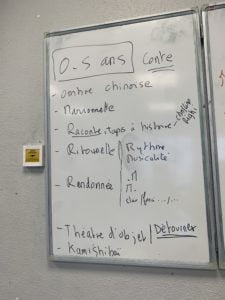 0-5 ans Conte
- ombre chinoise
- Marionnette
- Raconte-tapis à histoire -
- Ritournelle / Rythme
Musicalité
- Randonnée
- Théâtre d'objet / Détourner
- Kamishibaï